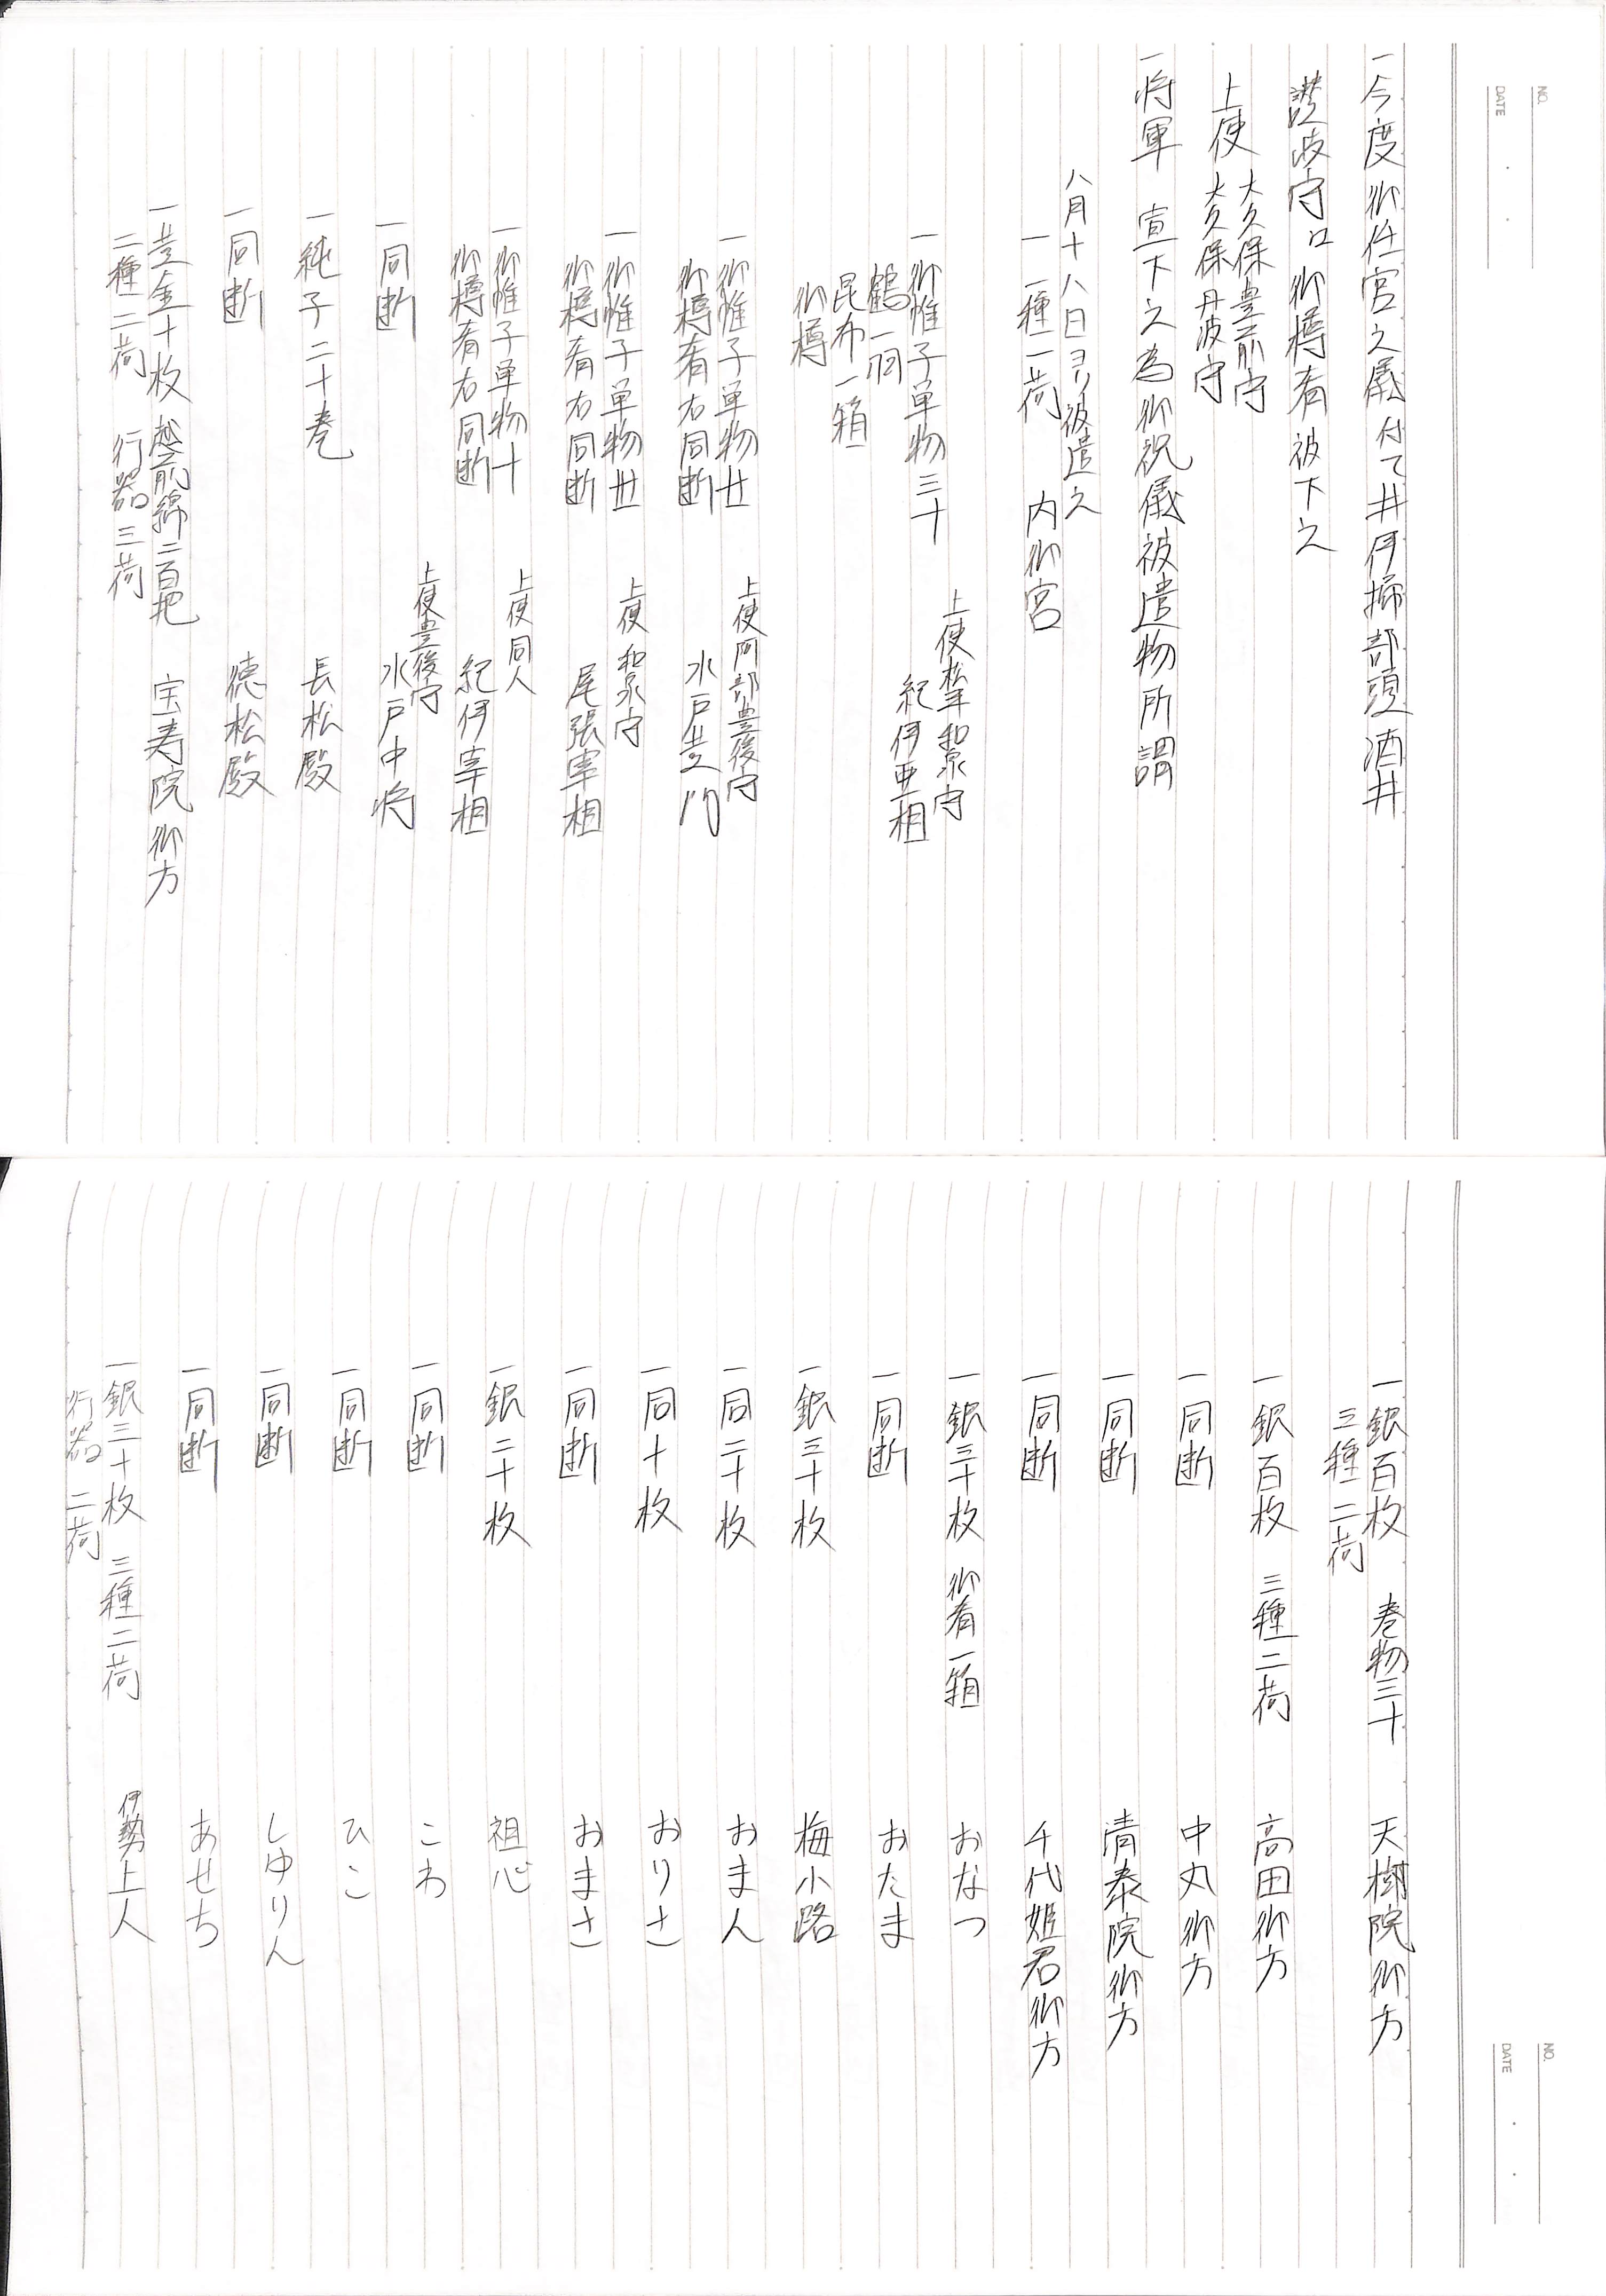 NO.
DATE
一今度御任官之儀付て井伊掃部頭酒井
讃岐守ニ御樽肴被下之
上使 大久保豊前守
大久保丹波守
一将軍 宣下之為御祝儀被遣物所謂
八月十八日ヨリ被遣之
一 一種一荷 内御宮
上使松平和泉守
一御帷子単物三十 紀伊亜相
鶴一羽
昆布一箱
御樽
上使阿部豊後守
一御帷子単物廿 水戸黄門
御樽肴右同断
上使和泉守
一御帷子単物廿 尾張宰相
御樽肴右同断
上使同人
一御帷子単物十 紀伊宰相
御樽肴右同断
上使豊後守
一同断 水戸中将
一純子二十巻 長松殿
一同断 徳松殿
一黄金十枚 越前綿二百把 宝寿院御方
二種二荷 行器三荷
NO.
DATE
一銀百枚 巻物三十 天樹院御方
三種二荷
一銀百枚 三種二荷 高田御方
一同断 中丸御方
一同断 清泰院御方
一同断 千代姫君御方
一銀三十枚 御肴一箱 おなつ
一同断 おたま
一銀三十枚 梅小路
一同二十枚 おまん
一同十枚 おりさ
一同断 おまさ
一銀二十枚 祖心
一同断 こわ
一同断 ひこ
一同断 しゆりん
一同断 あせち
一銀三十枚 三種二荷 伊勢上人
行器 二荷